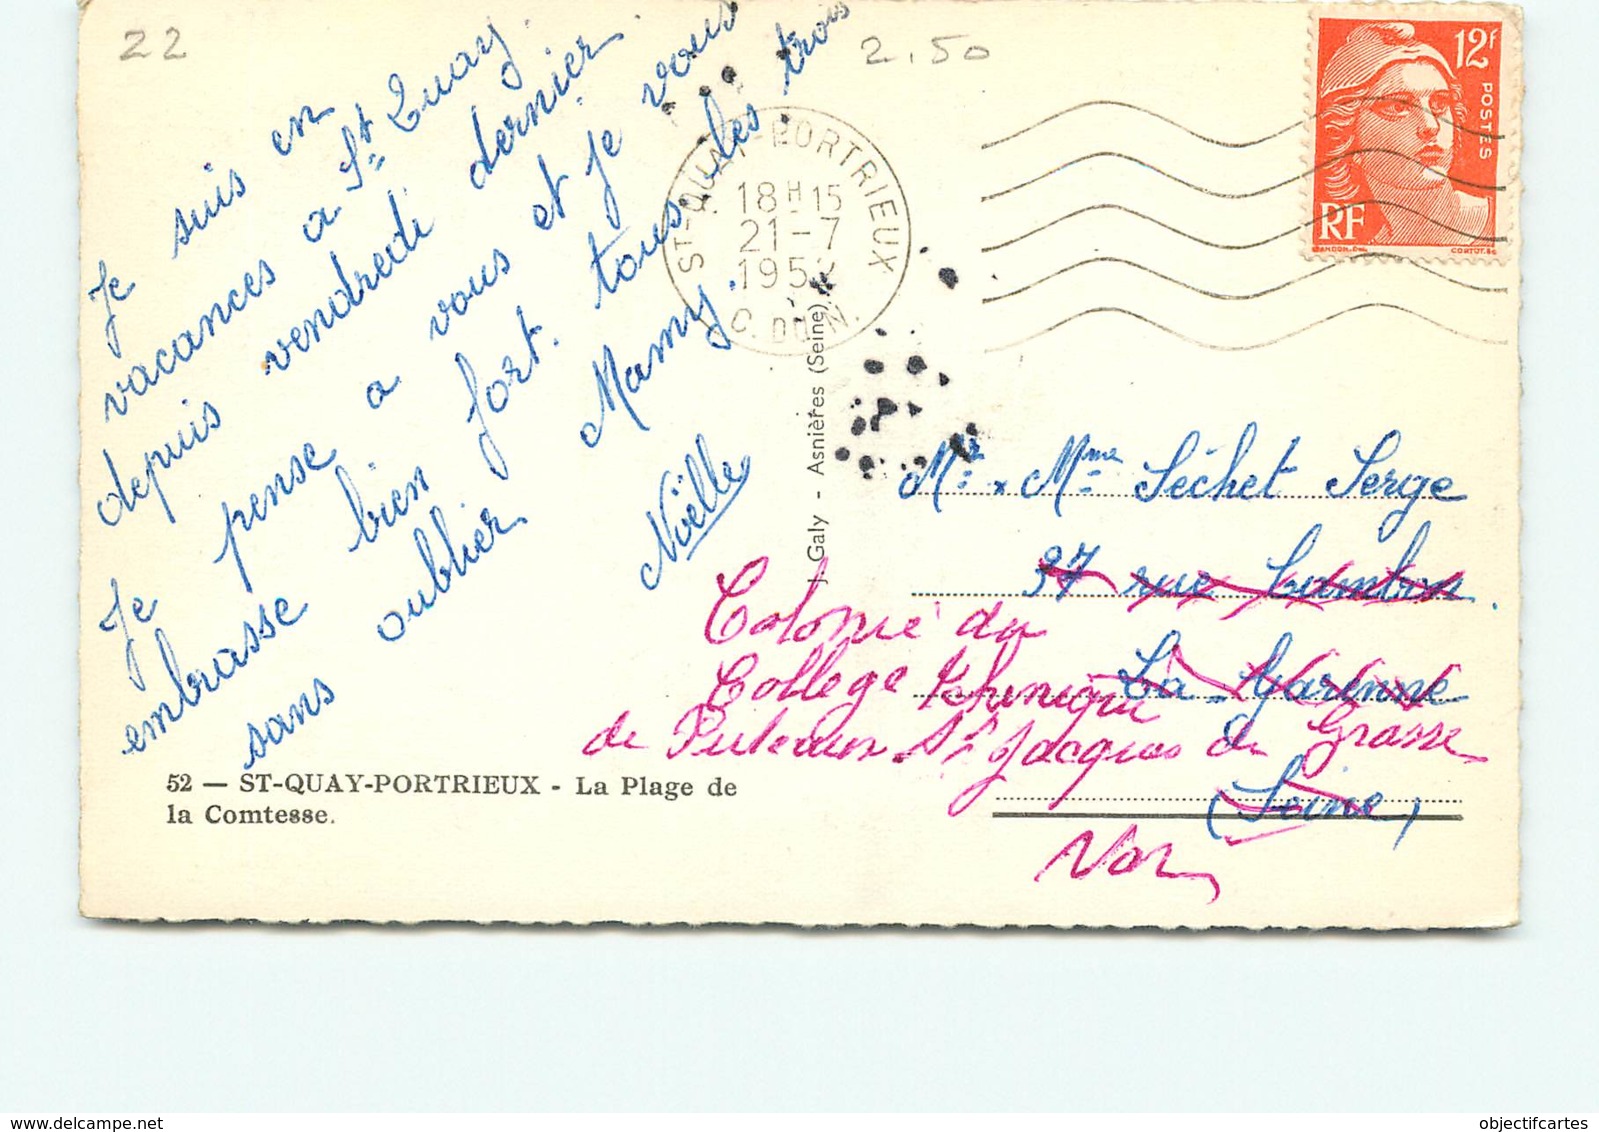 22
2.50
Je suis en
vacances a St Quay.
depuis vendredi dernier.
Je pense a vous et je vous
embrasse bien fort. tous les trois
sans oublier Mamy.
Noëlle
ST-QUAY-PORTRIEUX
18H15
21-7
1952
C. DU N.
12F
POSTES
RF
GANDON.DEL
CORTOT.SC
J. Galy - Asnières (Seine)
Mr x Mme Séchet Serge
37 rue Cambon.
La Garenne
(Seine)
Colonie du
College technique
de Puteaux St Jacques de Grasse
Var
52 — ST-QUAY-PORTRIEUX - La Plage de
la Comtesse.
objectifcartes